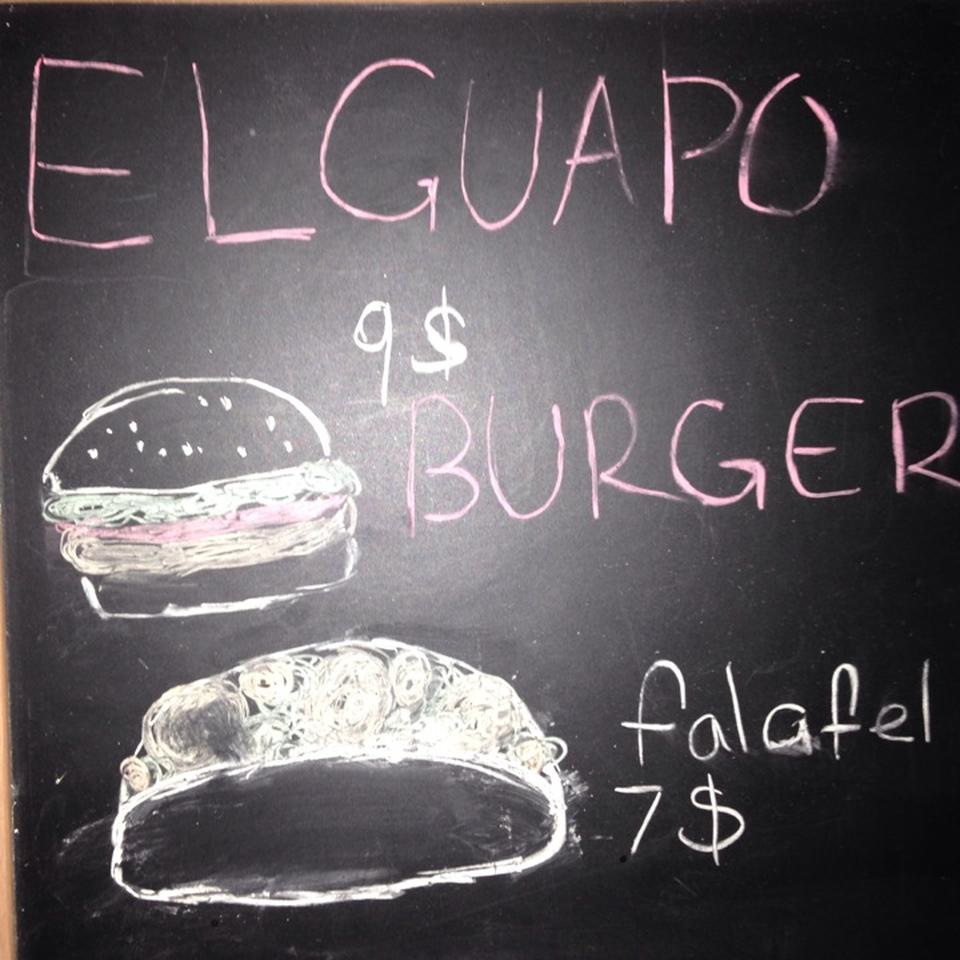 EL GUAPO
9$
BURGER
falafel
7$